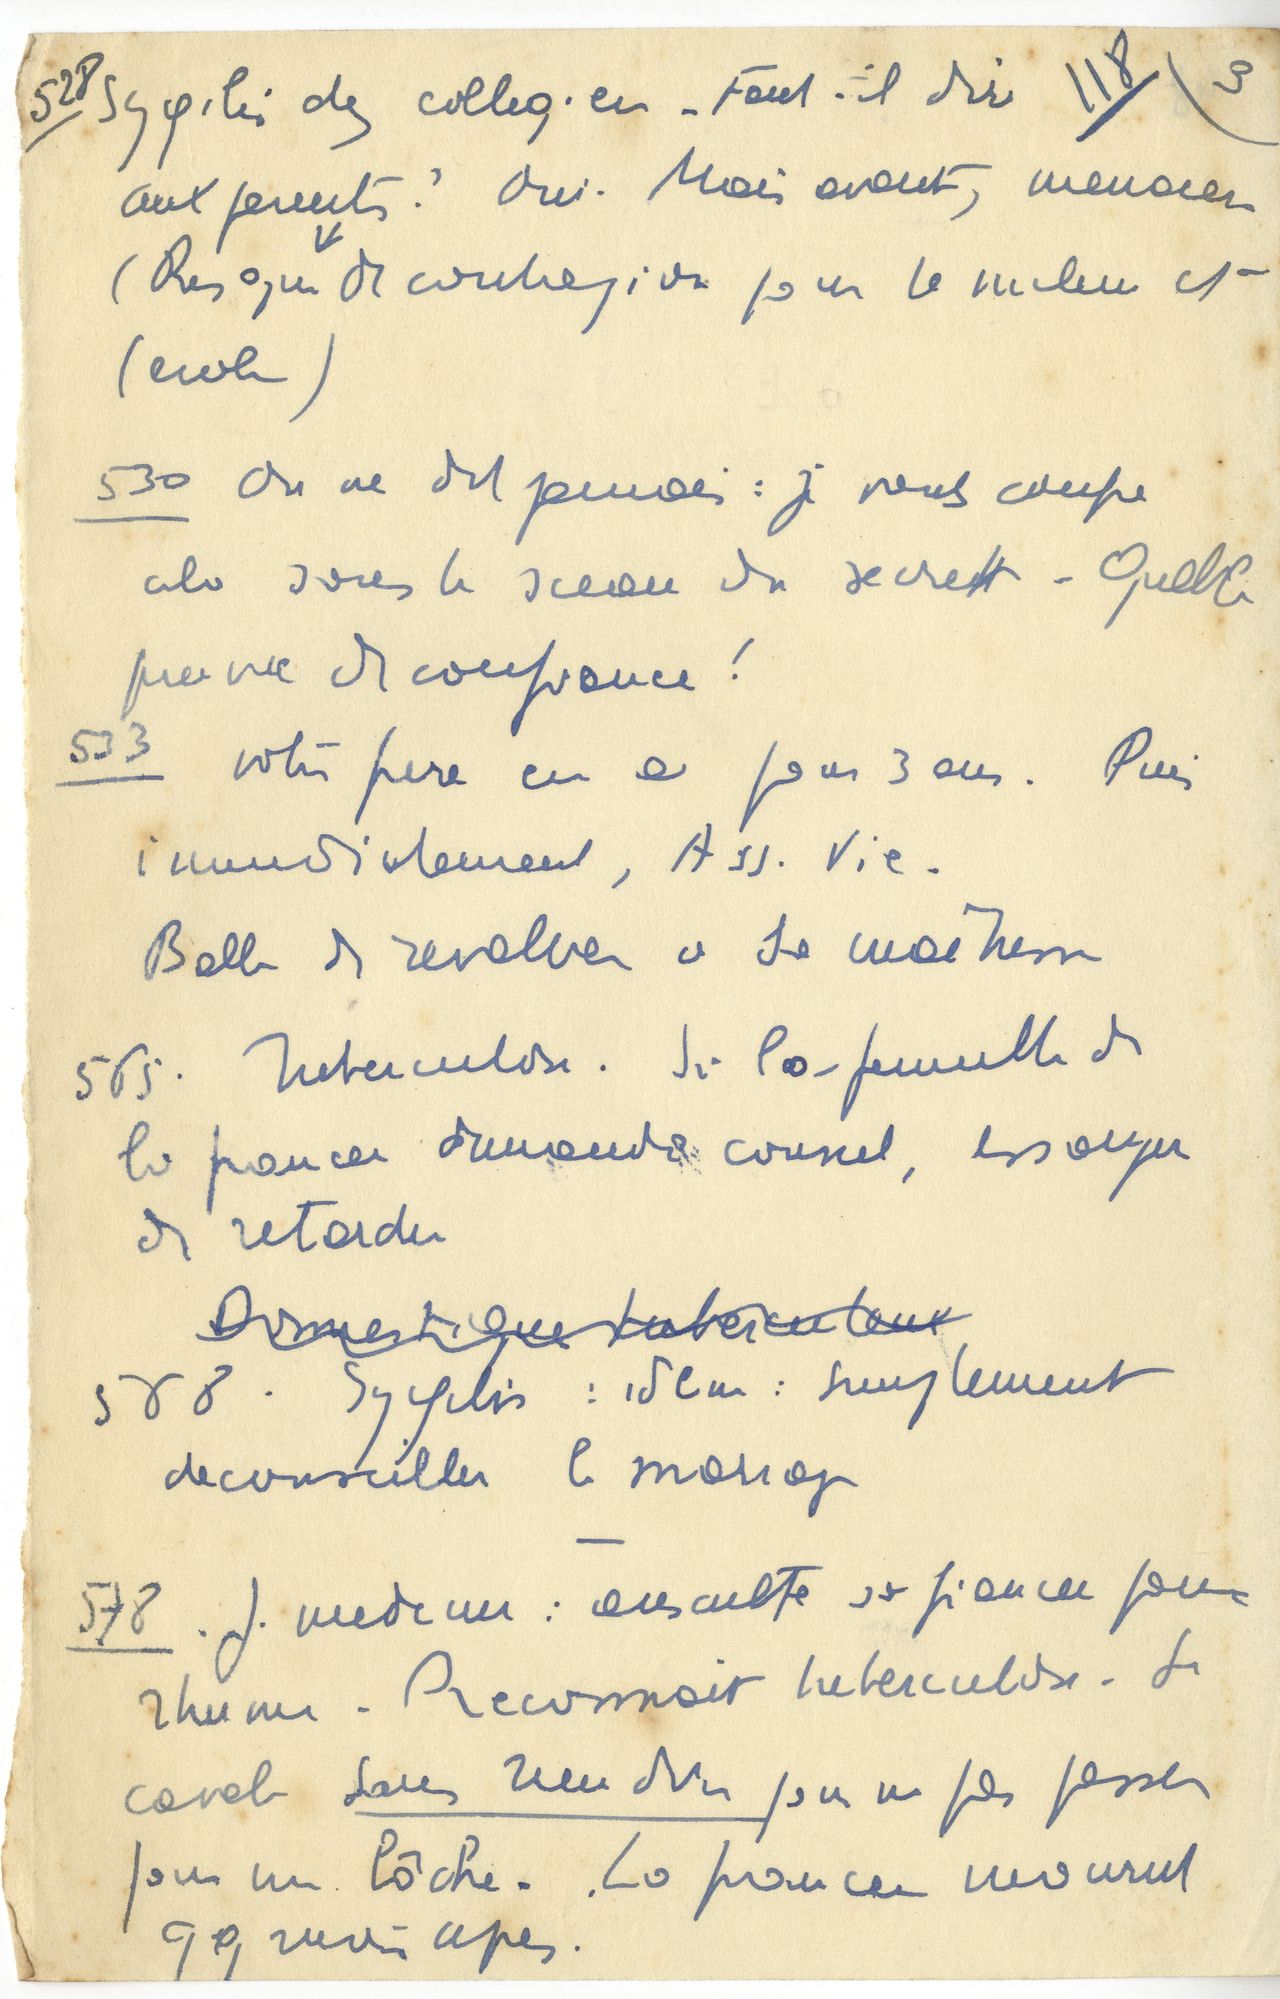 528 Syphilis des collégien - Faut-il dire 118 3
aux parents ? Oui. Mais avant, menacer
(Risque de contagion pour le milieu et
(ecole)
530 On ne dit jamais : je vous
cela sous le sceau du secret - Quelle
preuve de confiance !
533 votre père en a pour 3 ans. Puis
immediatement, Ass. Vie.
Balle de revolver a sa maîtresse
565. tuberculose. Si la famille de
la fiancée demande conseil, essayer
de retarder
Domestique tuberculeux
568. Syphilis : idem : simplement
deconseiller le mariage
578. J. medecin : ausculte sa fiancée pour
rhume - Reconnait tuberculose. Se
cavale sans rien dire pour ne pas passer
pour un lâche. La fiancée mourut
qq mois apres.